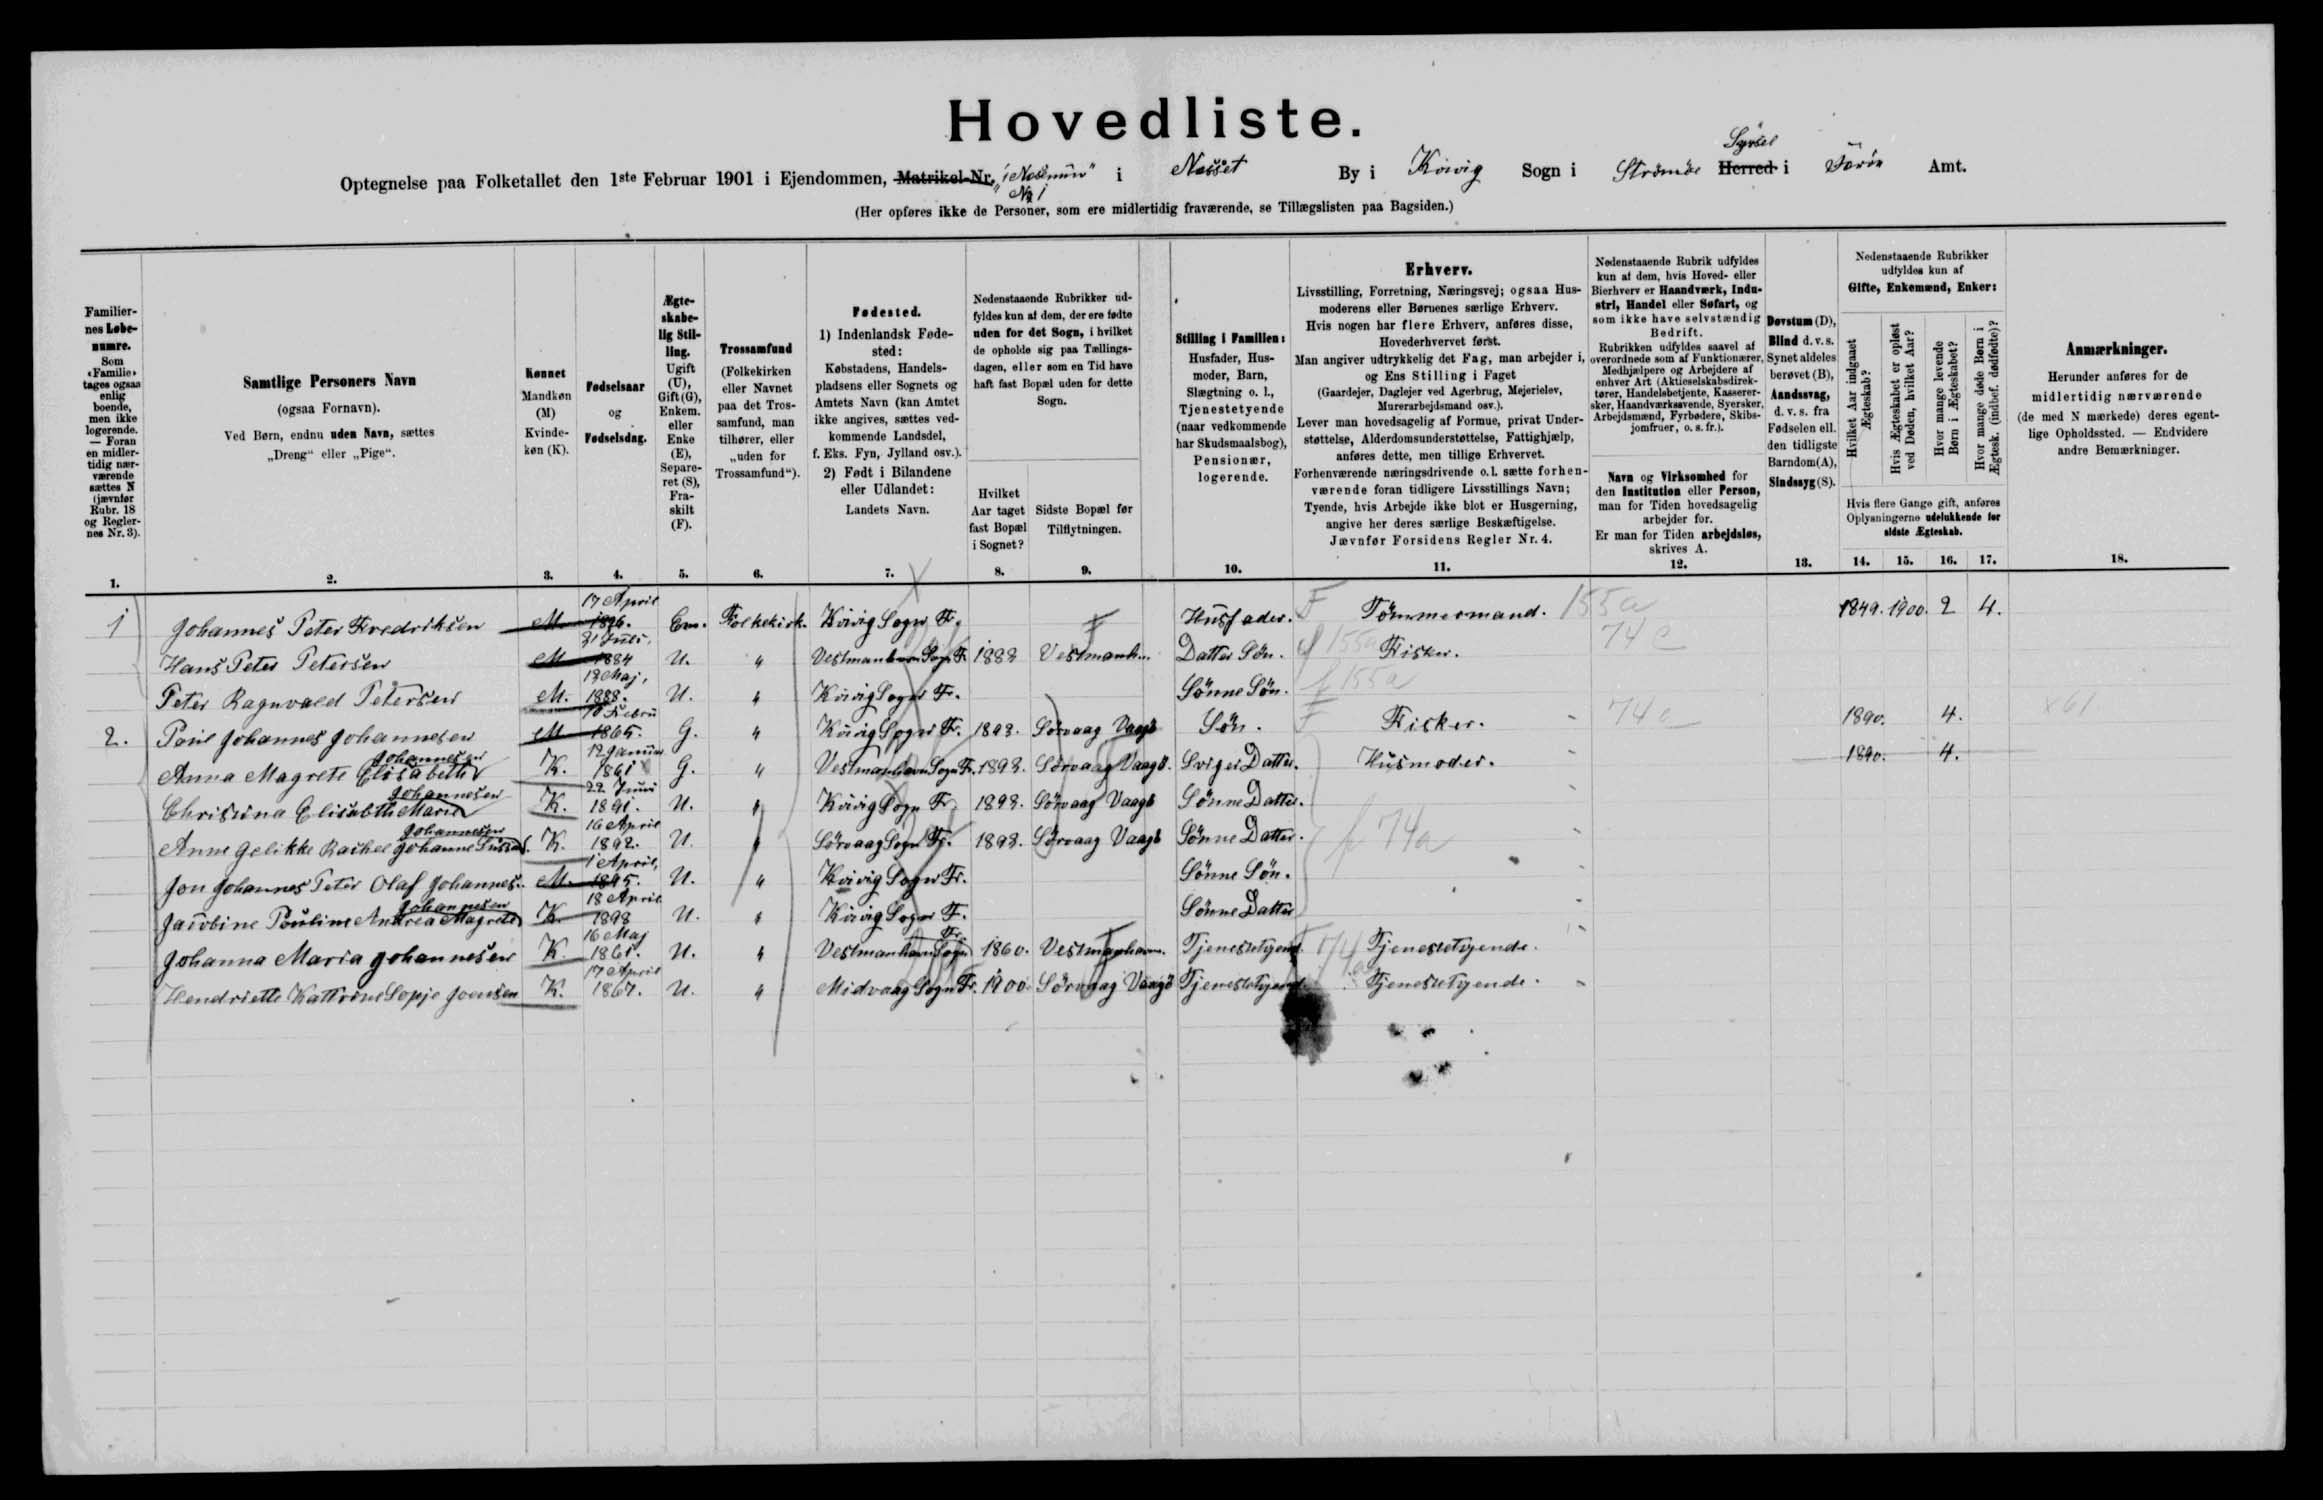 Hovedliste.
Optegnelse paa Folketallet den 1ste Februar 1901 i Ejendommen, Matrikel-Nr. i Næsset By i Kvivig Sogn i Strömöe Herred Syssel i Færöe Amt.
No 1
(Her opføres ikke de Personer, som ere midlertidig fraværende, se Tillægslisten paa Bagsiden.)
Familiernes Løbenumre.
Som «Familie» tages ogsaa enlig boende, men ikke logerende. — Foran en midlertidig nærværende sættes N (jævnfør Rubr. 18 og Reglernes Nr. 3).
1.
Samtlige Personers Navn
(ogsaa Fornavn).
Ved Børn, endnu uden Navn, sættes „Dreng“ eller „Pige“.
2.
Kønnet
Mandkøn (M)
Kvindekøn (K).
3.
Fødselsaar
og
Fødselsdag.
4.
Ægteskabelig Stilling.
Ugift (U), Gift (G), Enkem. eller Enke (E), Separeret (S), Fraskilt (F).
5.
Trossamfund
(Folkekirken eller Navnet paa det Trossamfund, man tilhører, eller „uden for Trossamfund“).
6.
Fødested.
1) Indenlandsk Fødested:
Købstadens, Handelspladsens eller Sognets og Amtets Navn (kan Amtet ikke angives, sættes vedkommende Landsdel, f. Eks. Fyn, Jylland osv.).
2) Født i Bilandene eller Udlandet:
Landets Navn.
7.
Nedenstaaende Rubrikker udfyldes kun af dem, der ere fødte uden for det Sogn, i hvilket de opholde sig paa Tællingsdagen, eller som en Tid have haft fast Bopæl uden for dette Sogn.
Hvilket Aar taget fast Bopæl i Sognet?
8.
Sidste Bopæl før Tilflytningen.
9.
Stilling i Familien:
Husfader, Husmoder, Barn, Slægtning o. l., Tjenestetyende (naar vedkommende har Skudsmaalsbog), Pensionær, logerende.
10.
Erhverv.
Livsstilling, Forretning, Næringsvej; ogsaa Husmoderens eller Børnenes særlige Erhverv.
Hvis nogen har flere Erhverv, anføres disse, Hovederhvervet først.
Man angiver udtrykkelig det Fag, man arbejder i, og Ens Stilling i Faget
(Gaardejer, Daglejer ved Agerbrug, Mejerielev, Murerarbejdsmand osv.).
Lever man hovedsagelig af Formue, privat Understøttelse, Alderdomsunderstøttelse, Fattighjælp, anføres dette, men tillige Erhvervet.
Forhenværende næringsdrivende o. l. sætte forhenværende foran tidligere Livsstillings Navn;
Tyende, hvis Arbejde ikke blot er Husgerning, angive her deres særlige Beskæftigelse.
Jævnfør Forsidens Regler Nr. 4.
11.
Nedenstaaende Rubrik udfyldes kun af dem, hvis Hoved- eller Bierhverv er Haandværk, Industri, Handel eller Søfart, og som ikke have selvstændig Bedrift.
Rubrikken udfyldes saavel af overordnede som af Funktionærer, Medhjælpere og Arbejdere af enhver Art (Aktieselskabsdirektører, Handelsbetjente, Kasserersker, Haandværkssvende, Syersker, Arbejdsmænd, Fyrbødere, Skibsjomfruer, o. s. fr.).
Navn og Virksomhed for den Institution eller Person, man for Tiden hovedsagelig arbejder for.
Er man for Tiden arbejdsløs, skrives A.
12.
Døvstum (D), Blind d. v. s. Synet aldeles berøvet (B), Aandssvag, d. v. s. fra Fødselen ell. den tidligste Barndom (A), Sindssyg (S).
13.
Nedenstaaende Rubrikker udfyldes kun af
Gifte, Enkemænd, Enker:
Hvilket Aar indgaaet Ægteskab?
Hvis Ægteskabet er opløst ved Døden, hvilket Aar?
Hvor mange levende Børn i Ægteskabet?
Hvor mange døde Børn i Ægtesk. (indbef. dødfødte)?
Hvis flere Gange gift, anføres Oplysningerne udelukkende for sidste Ægteskab.
14. 15. 16. 17.
Anmærkninger.
Herunder anføres for de midlertidig nærværende (de med N mærkede) deres egentlige Opholdssted. — Endvidere andre Bemærkninger.
18.
1 Johannes Peter Fredriksen M. 17 April Em. Folkekirk. Kvivig Sogn Fr. Husfader. F Tömmermand. 155a 1849. 1900. 2 4.
Hans Peter Petersen M 1884 U. " Vestmanhavn Sogn Fr 1888 Vestmanh. Datter Sön. 155a Fisker. 74c
Peter Ragnvald Petersen M. 18 Maj, 1888. U. " Kvivig Sogn Fr. Sönne Sön. f 155a
2. Poul Johannes Johannesen M 1865. G. " Kvivig Sogn Fr. 1898. Sörvaag Vaagö Sön. F Fisker. 74a 1890. 4. x61
Anna Magrete Elisabeth Johannesen K. 1861 G. " Vestmanhavn Sogn Fr. 1898. Sörvaag Vaagö. Sviger Datter. Husmoder. 1890. 4.
Christina Elisabth Maria Johannesen K. 22 Juni 1891. U. " Kvivig Sogn Fr. 1898. Sörvaag Vaagö Sönne Datter.
Anne Gelikke Rachel Johanne Johannesen K. 16 April 1892. U. " Sörvaag Sogn Fr. 1898. Sörvaag Vaagö Sönne Datter. f 74a
Jon Johannes Peter Olaf Johannes. M. 1 April, 1895. U. " Kvivig Sogn Fr. Sönne Sön.
Jacobine Pouline Andrea Magrete Johannesen K 18 April 1898 U. " Kvivig Sogn F. Sönne Datter
Johanna Maria Johannesen K. 16 Maj 1861. U. " Vestmanhavn Sogn Fr. 1860. Vestmanhavn. Tjenestetyend. 74a Tjenestetyende.
Hendriette Kattrine Sopje Joensen K. 17 April 1867. U. " Midvaag Sogn Fr. 1900. Sörvaag Vaagö Tjenestetyend. Tjenestetyende.